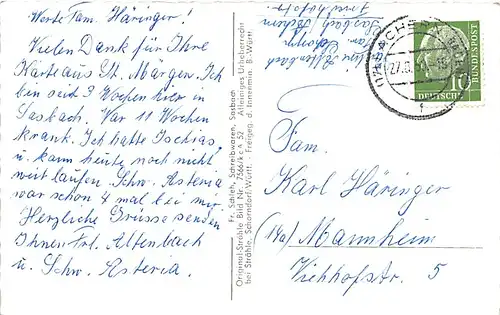 Werte Fam. Häringer!
Vielen Dank für Ihre
Karte aus St. Märgen. Ich
bin seit 3 Wochen hier in
Sasbach. War 11 Wochen
krank. Ich hatte Ischias,
u. kann heute noch nicht
weit laufen. Schw. Asteria
war schon 4 mal bei mir.
Herzliche Grüsse senden
Ihnen Frl. Altenbach
u. Schw. Asteria.
Fr. Schleh, Schreibwaren, Sasbach
Original-Strähle Bild Nr. 7566/kc A 52 Alleiniges Urheberrecht
bei Strähle, Schorndorf/Württ. Freigig. d. Innenmin. B.-Württ.
Altenbach
Sasbach
DEUTSCHE BUNDESPOST
10
Fam.
Karl Häringer
(17a) Mannheim
Viehhofstr. 5